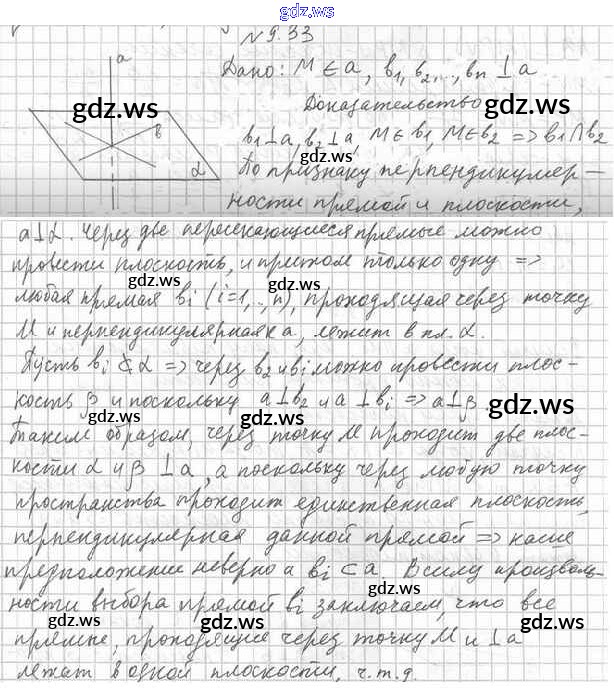 gdz.ws
N 9.33
a
Дано: M ∈ a, в₁, в₂,..., вn ⊥ a
gdz.ws gdz.ws
Доказательство
в
в₁⊥a, в₂⊥a, M∈в₁, M∈в₂ => в₁∩в₂
α
По признаку перпендикуляр-
ности прямой и плоскости,
a⊥α. Через две пересекающиеся прямые можно
gdz.ws
провести плоскость, и притом только одну =>
gdz.ws
любая прямая вi (i=1,..,n), проходящая через точку
M и перпендикулярная к a, лежит в пл. α.
Пусть вi ⊄ α => через в₂ и вi можно провести плос-
gdz.ws
кость β и поскольку a⊥в₂ и a⊥вi => a⊥β.
gdz.ws
Таким образом, через точку M проходит две плос-
кости α и β ⊥ a, а поскольку через любую точку
gdz.ws
пространства проходит единственная плоскость,
gdz.ws
перпендикулярная данной прямой => наше
предположение неверно а вi ⊂ a В силу произволь-
gdz.ws
ности выбора прямой вi заключаем, что все
gdz.ws
прямые, проходящие через точку M и ⊥ a
лежат в одной плоскости, ч.т.д.
gdz.ws